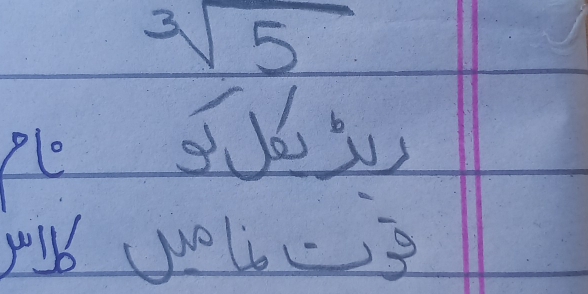 ³√5
ریڈیکل کو نام
قوت نما میں کلاس